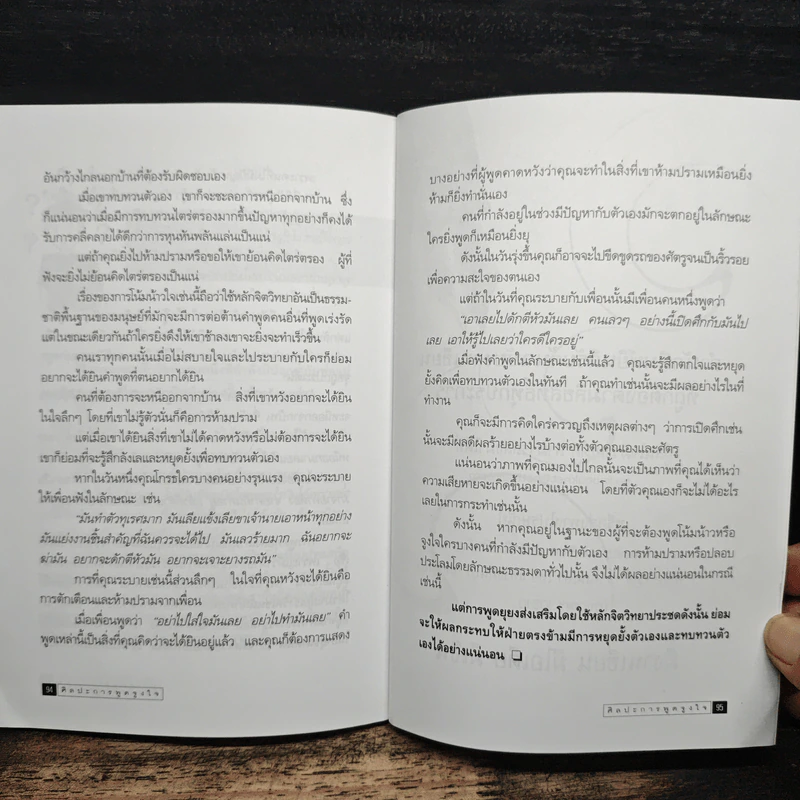 อันกว้างไกลนอกบ้านที่ต้องรับผิดชอบเอง
เมื่อเขาทบทวนตัวเอง เขาก็จะชะลอการหนีออกจากบ้าน ซึ่ง
ก็แน่นอนว่าเมื่อมีการทบทวนไตร่ตรองมากขึ้นปัญหาทุกอย่างก็คงได้
รับการคลี่คลายได้ดีกว่าการหุนหันพลันแล่นเป็นแน่
แต่ถ้าคุณยิ่งไปห้ามปรามหรือขอให้เขาย้อนคิดไตร่ตรอง ผู้ที่
ฟังจะยิ่งไม่ย้อนคิดไตร่ตรองเป็นแน่
เรื่องของการโน้มน้าวใจเช่นนี้ถือว่าใช้หลักจิตวิทยาอันเป็นธรรม-
ชาติพื้นฐานของมนุษย์ที่มักจะมีการต่อต้านคำพูดคนอื่นที่พูดเร่งรัด
แต่ในขณะเดียวกันถ้าใครยิ่งดึงให้เขาช้าลงเขาจะยิ่งจะทำเร็วขึ้น
คนเราทุกคนนั้นเมื่อไม่สบายใจและไประบายกับใครก็ย่อม
อยากจะได้ยินคำพูดที่ตนอยากได้ยิน
คนที่ต้องการจะหนีออกจากบ้าน สิ่งที่เขาหวังอยากจะได้ยิน
ในใจลึกๆ โดยที่เขาไม่รู้ตัวนั่นก็คือการห้ามปราม
แต่เมื่อเขาได้ยินสิ่งที่เขาไม่ได้คาดหวังหรือไม่ต้องการจะได้ยิน
เขาก็ย่อมที่จะรู้สึกลังเลและหยุดยั้งเพื่อทบทวนตัวเอง
หากในวันหนึ่งคุณโกรธใครบางคนอย่างรุนแรง คุณจะระบาย
ให้เพื่อนฟังในลักษณะ เช่น
“มันทำตัวทุเรศมาก มันเลียแข้งเลียขาเจ้านายเอาหน้าทุกอย่าง
มันแย่งงานชิ้นสำคัญที่ฉันควรจะได้ไป มันเลวร้ายมาก ฉันอยากจะ
ฆ่ามัน อยากจะดักตีหัวมัน อยากจะเจาะยางรถมัน”
การที่คุณระบายเช่นนี้ส่วนลึกๆ ในใจที่คุณหวังจะได้ยินคือ
การตักเตือนและห้ามปรามจากเพื่อน
เมื่อเพื่อนพูดว่า “อย่าไปใส่ใจมันเลย อย่าไปทำมันเลย” คำ
พูดเหล่านี้เป็นสิ่งที่คุณคิดว่าจะได้ยินอยู่แล้ว และคุณก็ต้องการแสดง
94 ศิลปะการพูดจูงใจ
บางอย่างที่ผู้พูดคาดหวังว่าคุณจะทำในสิ่งที่เขาห้ามปรามเหมือนยิ่ง
ห้ามก็ยิ่งทำนั่นเอง
คนที่กำลังอยู่ในช่วงมีปัญหากับตัวเองมักจะตกอยู่ในลักษณะ
ใครยิ่งพูดก็เหมือนยิ่งยุ
ดังนั้นในวันรุ่งขึ้นคุณก็อาจจะไปขีดขูดรถของศัตรูจนเป็นริ้วรอย
เพื่อความสะใจของตนเอง
แต่ถ้าในวันที่คุณระบายกับเพื่อนนั้นมีเพื่อนคนหนึ่งพูดว่า
“เอาเลยไปดักตีหัวมันเลย คนเลวๆ อย่างนี้เปิดศึกกับมันไป
เลย เอาให้รู้ไปเลยว่าใครดีใครอยู่”
เมื่อฟังคำพูดในลักษณะเช่นนี้แล้ว คุณจะรู้สึกตกใจและหยุด
ยั้งคิดเพื่อทบทวนตัวเองในทันที ถ้าคุณทำเช่นนั้นจะมีผลอย่างไรในที่
ทำงาน
คุณก็จะมีการคิดใคร่ครวญถึงเหตุผลต่างๆ ว่าการเปิดศึกเช่น
นั้นจะมีผลดีผลร้ายอย่างไรบ้างต่อทั้งตัวคุณเองและศัตรู
แน่นอนว่าภาพที่คุณมองไปไกลนั้นจะเป็นภาพที่คุณได้เห็นว่า
ความเสียหายจะเกิดขึ้นอย่างแน่นอน โดยที่ตัวคุณเองก็จะไม่ได้อะไร
เลยในการกระทำเช่นนั้น
ดังนั้น หากคุณอยู่ในฐานะของผู้ที่จะต้องพูดโน้มน้าวหรือ
จูงใจใครบางคนที่กำลังมีปัญหากับตัวเอง การห้ามปรามหรือปลอบ
ประโลมโดยลักษณะธรรมดาทั่วไปนั้น จึงไม่ได้ผลอย่างแน่นอนในกรณี
เช่นนี้
แต่การพูดยุยงส่งเสริมโดยใช้หลักจิตวิทยาประชดดังนั้น ย่อม
จะให้ผลกระทบให้ฝ่ายตรงข้ามมีการหยุดยั้งตัวเองและทบทวนตัว
เองได้อย่างแน่นอน ❏
ศิลปะการพูดจูงใจ 95